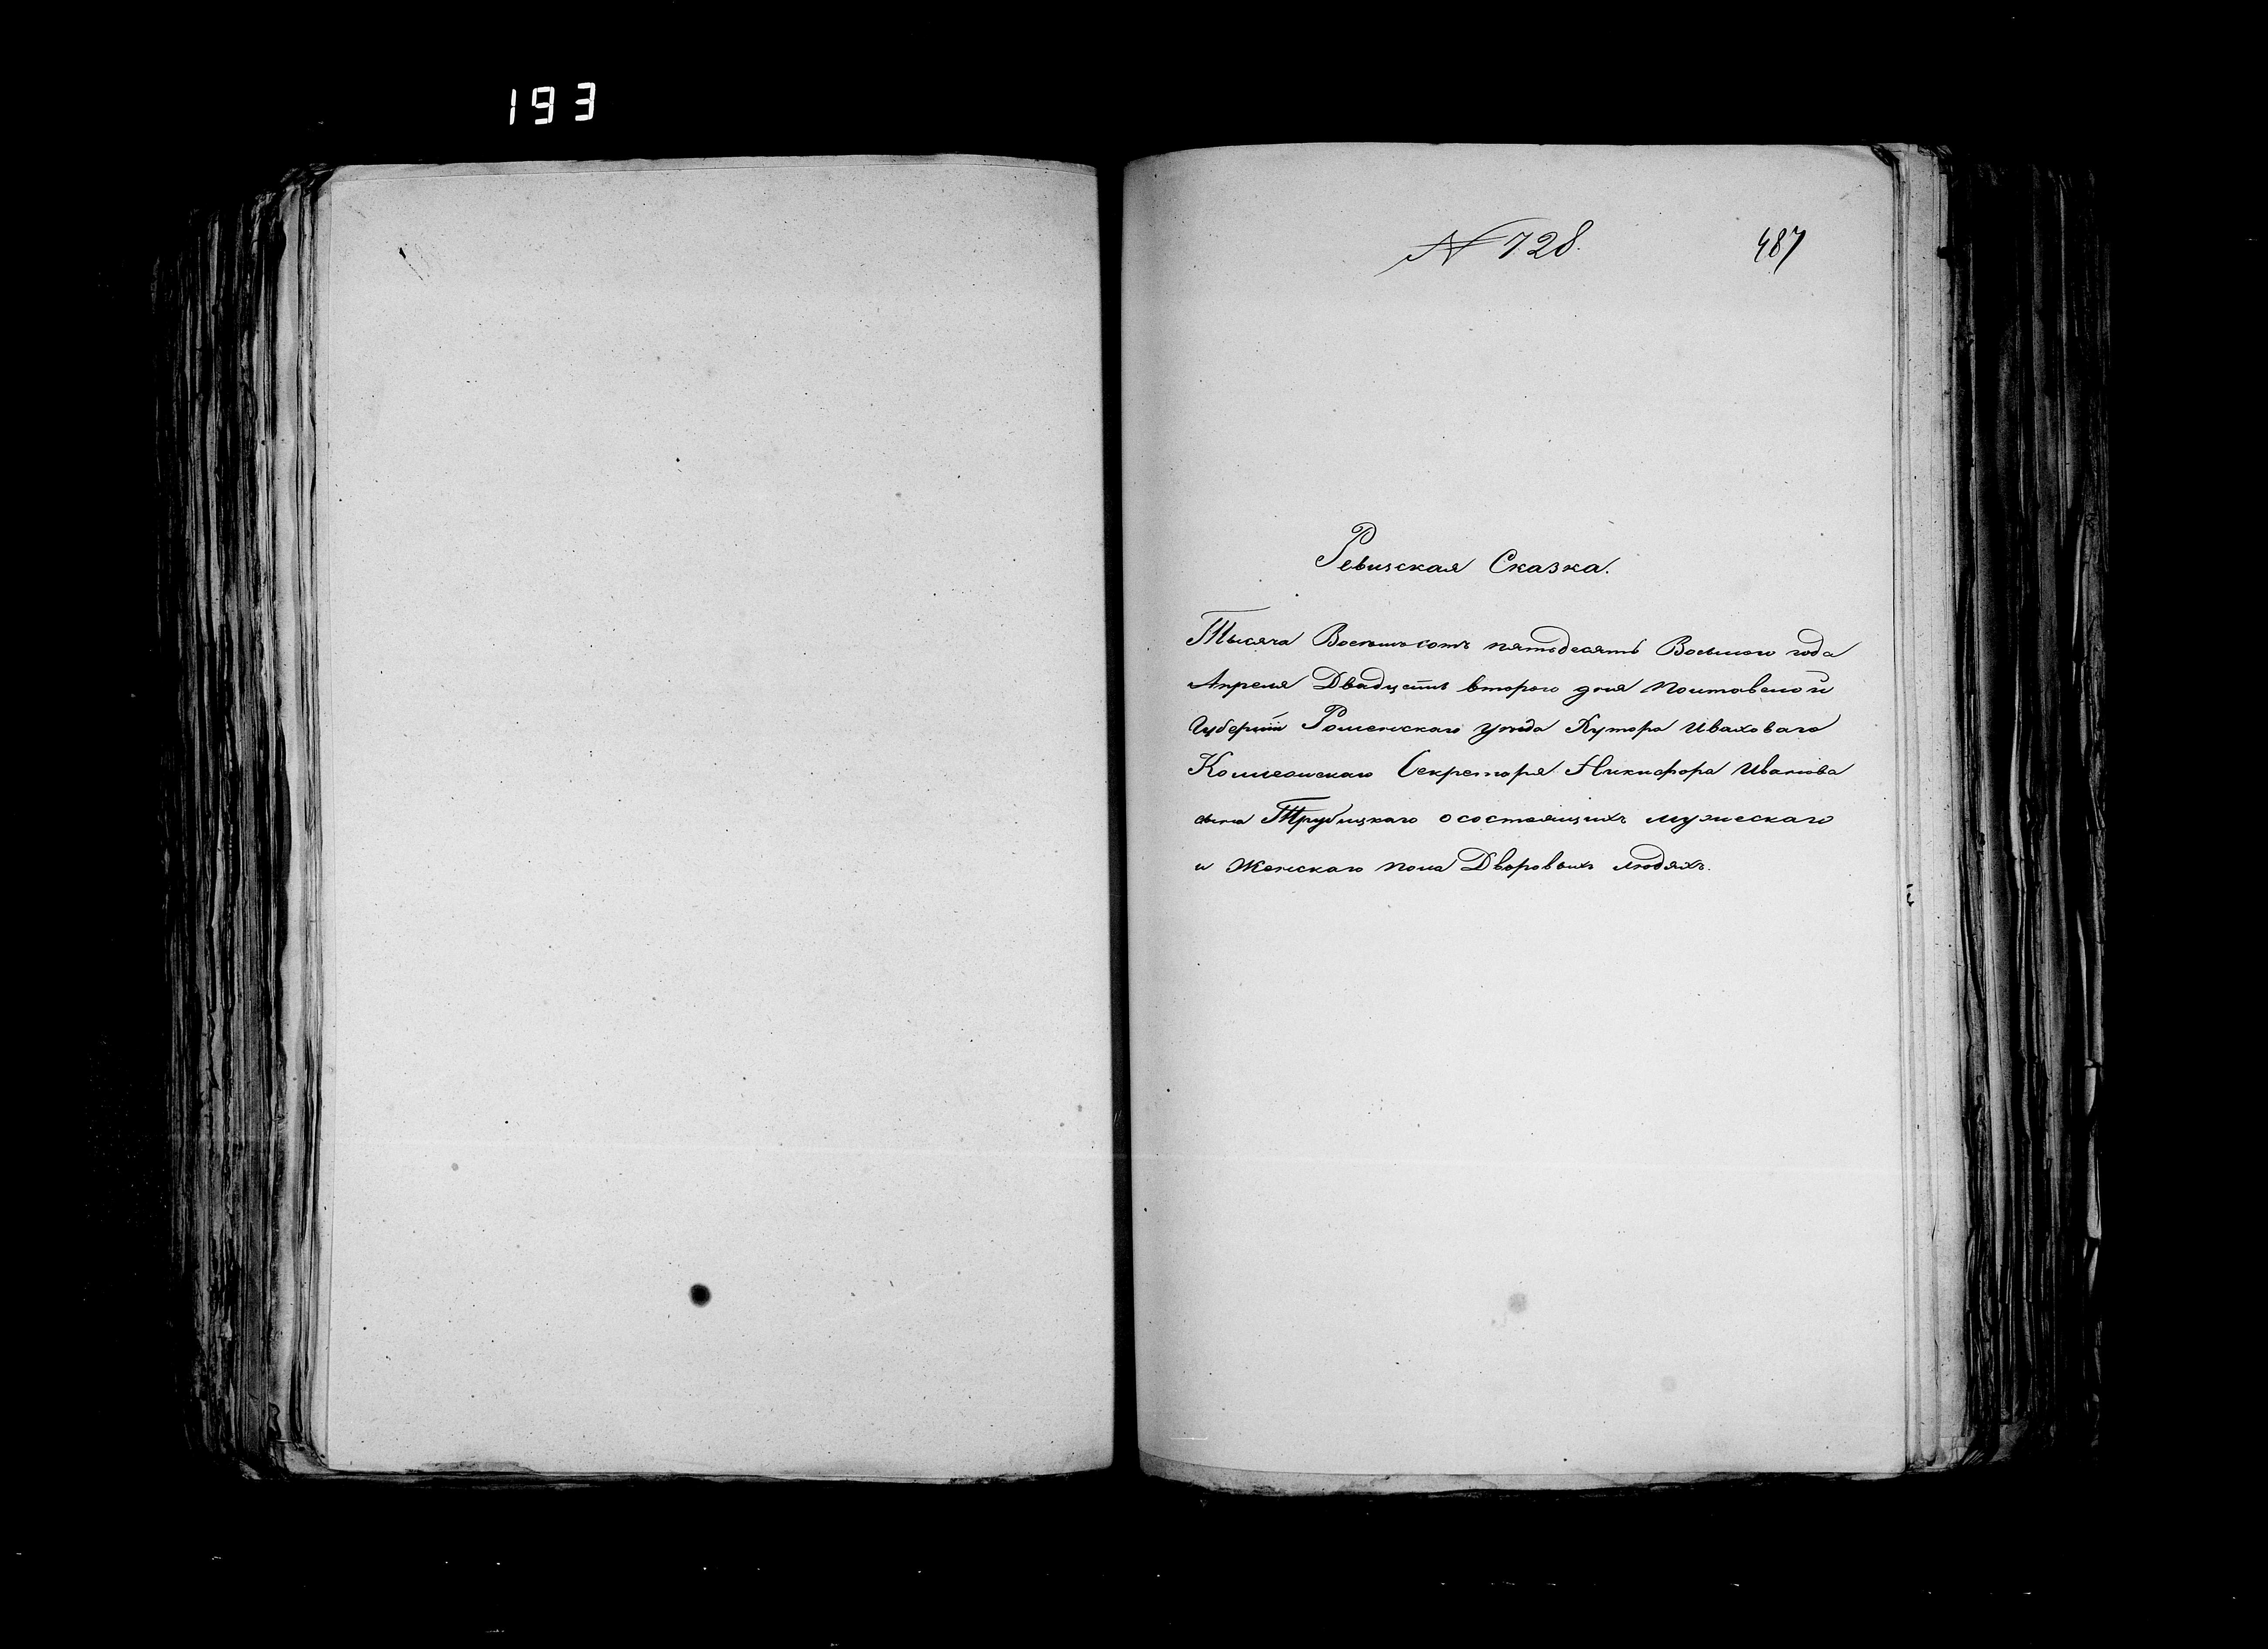 193
№ 728.
487
Ревизская Сказка.
Тысяча Восемьсотъ пятьдесятъ Восьмого года
Апреля Двадцать второго дня Полтавской
Губерніи Роменскаго уѣзда Хутора Ивахового
Коллежскаго Секретаря Никифора Иванова
сына Трубицкаго о состоящихъ мужескаго
и Женскаго пола Дворовыхъ людяхъ.